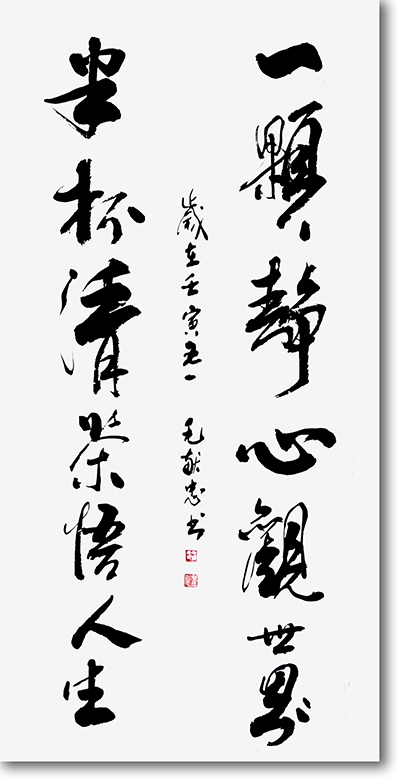 一顆靜心觀世界
半杯清茶悟人生
歲在壬寅五一 毛献忠书